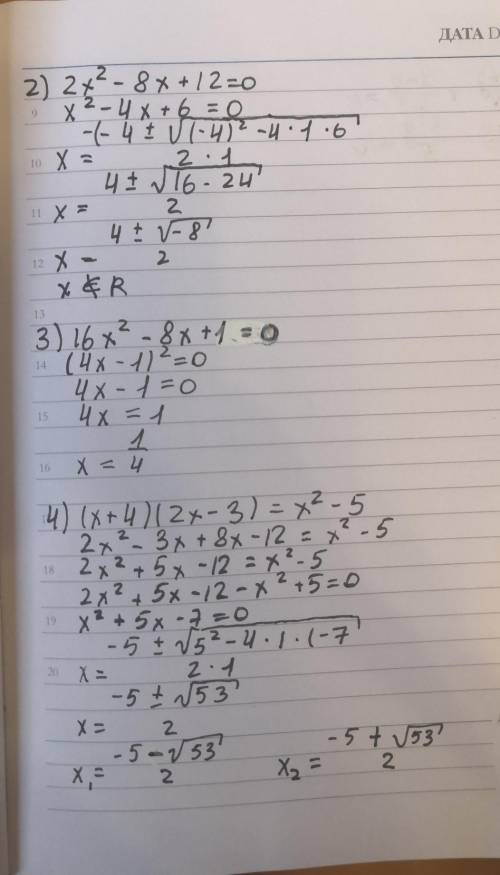 ДАТА D
2) 2x² - 8x + 12 = 0
9 x² - 4x + 6 = 0
-(-4 ± √(-4)² - 4 · 1 · 6
10 x =
2 · 1
4 ± √16 - 24
11 x =
2
4 ± √-8
12 x -
2
x ∉ R
13
3) 16x² - 8x + 1 = 0
14 (4x - 1)² = 0
4x - 1 = 0
15 4x = 1
1
16 x = 4
4) (x + 4)(2x - 3) = x² - 5
2x² - 3x + 8x - 12 = x² - 5
18 2x² + 5x - 12 = x² - 5
2x² + 5x - 12 - x² + 5 = 0
19 x² + 5x - 7 = 0
-5 ± √5² - 4 · 1 · (-7
20 x =
2 · 1
-5 ± √53
x =
2
-5 - √53 -5 + √53
x₁ = 2 x₂ = 2